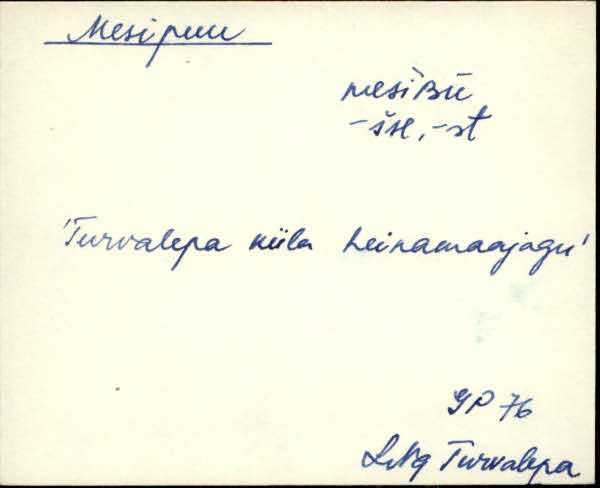 Mesipuu
mesiʙũ
-šse, -st
'Turvalepa küla heinamaajagu'
JP 76
LNg Turvalepa